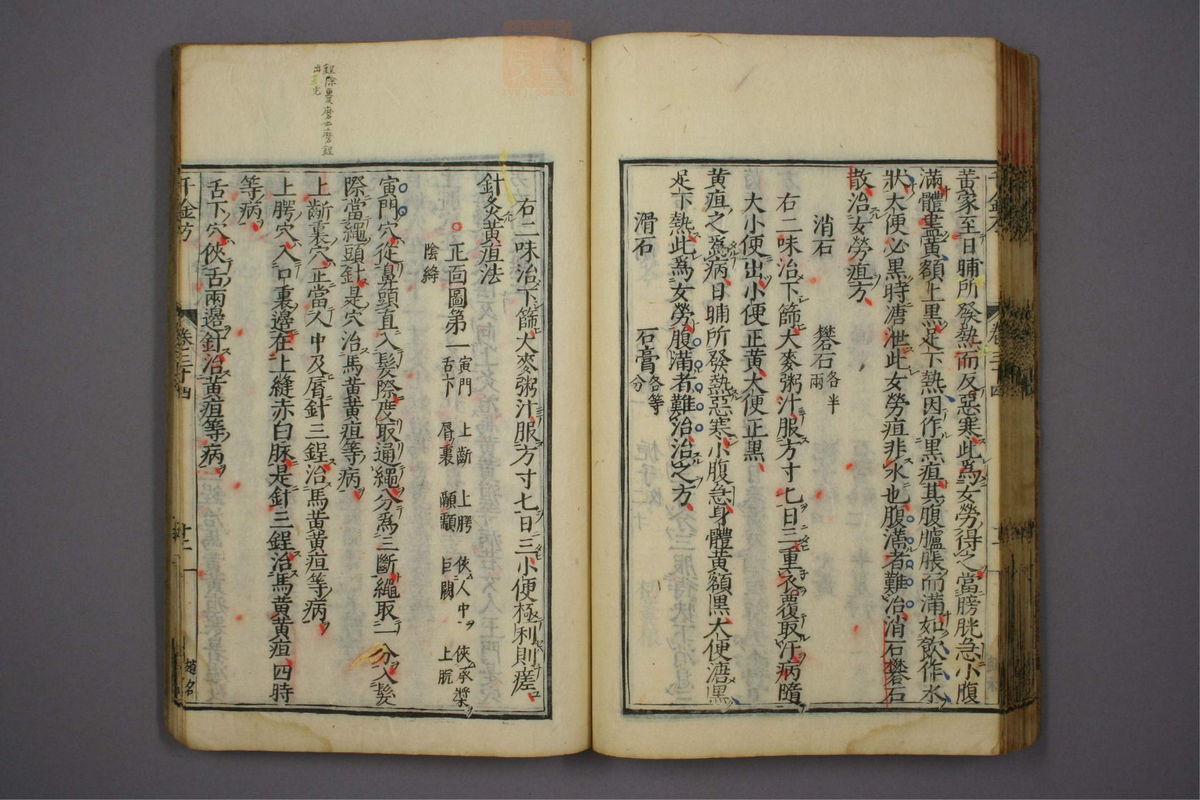 黃家至日晡所發熱而反惡寒此爲女勞得之當膀胱急小腹
滿體盡黃額上黑足下熱因作黑疸其腹臚脹而滿如飮作水
狀大便必黑時溏泄此女勞疸非水也腹滿者難治消石礬石
散治女勞疸方
消石 礬石各半兩
右二味治下篩大麥粥汁服方寸七日三重衣覆取汗病隨
大小便出小便正黃大便正黑
黃疸之爲病日晡所發熱惡寒小腹急身體黃額黑大便溏黑
足下熱此爲女勞腹滿者難治治之方
滑石 石膏各等分
千金方 卷三十四
右二味治下篩大麥粥汁服方寸七日三小便極利則瘥
針灸黃疸法
正面圖第一 寅門 上齗 上腭 俠人中 俠承漿
舌下 脣裏 顳顬 巨闕 上脘
陰縫
寅門穴從鼻頭直入髮際度取通繩分爲三斷繩取一分入髮
際當繩頭針是穴治馬黃黃疸等病
上齗裏穴正當人中及脣針三鋥治馬黃黃疸等病
上腭穴入口裏邊在上縫赤白脉是針三鋥治馬黃黃疸四時
等病
舌下穴俠舌兩邊針治黃疸等病
千金方 卷三十四